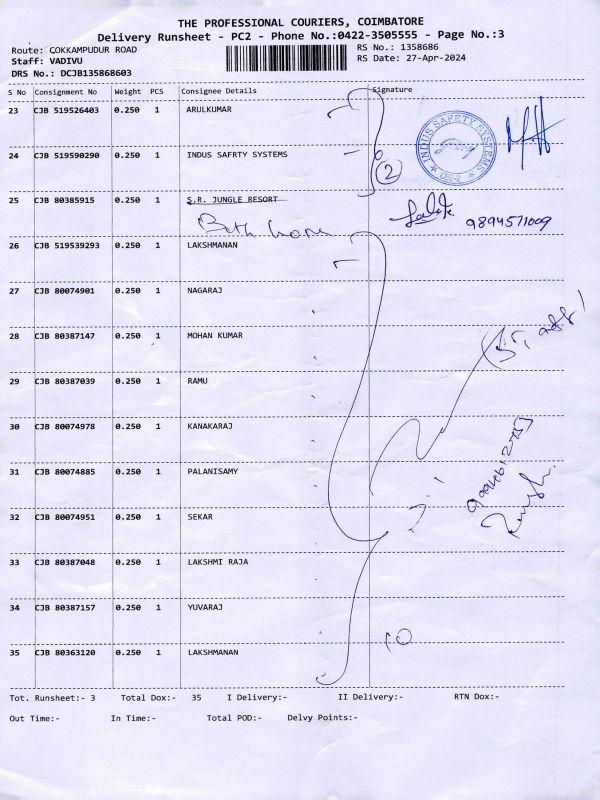 THE PROFESSIONAL COURIERS, COIMBATORE
Delivery Runsheet - PC2 - Phone No.:0422-3505555 - Page No.:3
Route: COKKAMPUDUR ROAD RS No.: 1358686
Staff: VADIVU RS Date: 27-Apr-2024
DRS No.: DCJB135868603
S No Consignment No Weight PCS Consignee Details Signature
23 CJB 519526403 0.250 1 ARULKUMAR
24 CJB 519590290 0.250 1 INDUS SAFRTY SYSTEMS
INDUS SAFETY SYSTEMS
CBE-2
2
25 CJB 80385915 0.250 1 S.R. JUNGLE RESORT
9894571009
26 CJB 519539293 0.250 1 LAKSHMANAN
27 CJB 80074901 0.250 1 NAGARAJ
28 CJB 80387147 0.250 1 MOHAN KUMAR
29 CJB 80387039 0.250 1 RAMU
30 CJB 80074978 0.250 1 KANAKARAJ
31 CJB 80074885 0.250 1 PALANISAMY
32 CJB 80074951 0.250 1 SEKAR
33 CJB 80387048 0.250 1 LAKSHMI RAJA
34 CJB 80387157 0.250 1 YUVARAJ
10
35 CJB 80363120 0.250 1 LAKSHMANAN
Tot. Runsheet:- 3 Total Dox:- 35 I Delivery:- II Delivery:- RTN Dox:-
Out Time:- In Time:- Total POD:- Delvy Points:-